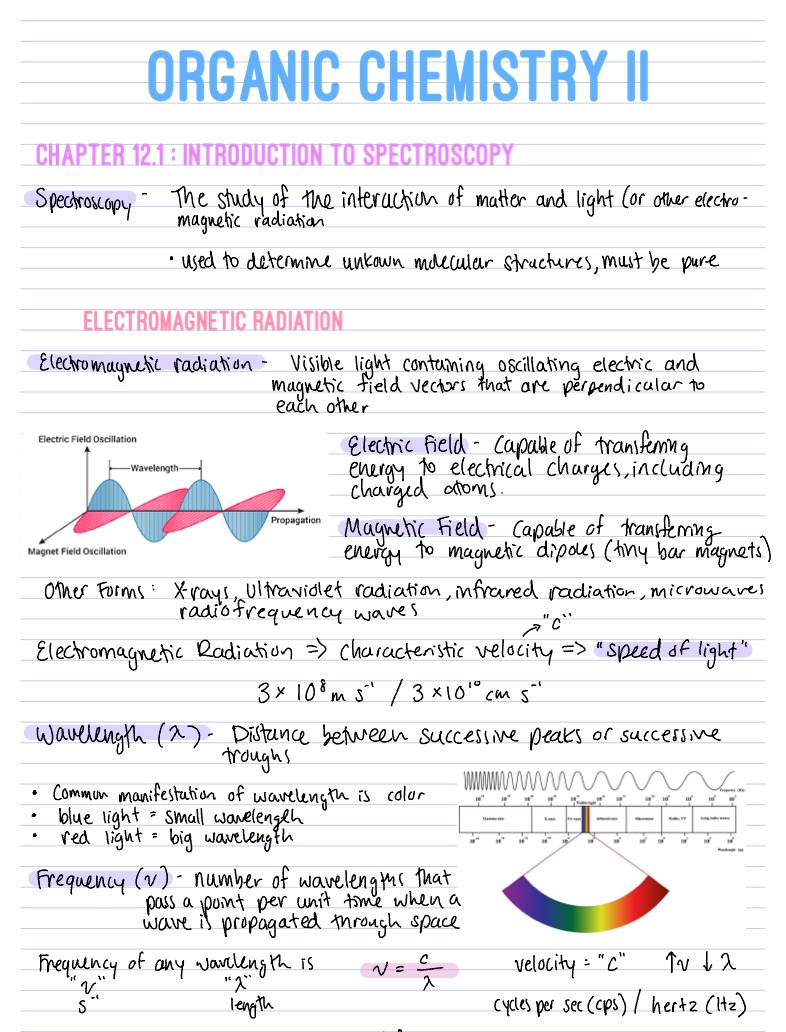 ORGANIC CHEMISTRY II
CHAPTER 12.1 : INTRODUCTION TO SPECTROSCOPY
Spectroscopy - The study of the interaction of matter and light (or other electro-
magnetic radiation
• used to determine unkown molecular structures, must be pure
ELECTROMAGNETIC RADIATION
Electromagnetic radiation - Visible light containing oscillating electric and
magnetic field vectors that are perpendicular to
each other
Electric Field Oscillation
Wavelength
Propagation
Magnet Field Oscillation
Electric Field - Capable of transferring
energy to electrical charges, including
charged atoms.
Magnetic Field - Capable of transferring
energy to magnetic dipoles (tiny bar magnets)
Other Forms : X-rays, Ultraviolet radiation, infrared radiation, microwaves
radiofrequency waves
"C"
Electromagnetic Radiation => characteristic velocity => "speed of light"
3 × 10⁸ m s⁻¹ / 3 × 10¹⁰ cm s⁻¹
Wavelength (λ) - Distance between successive peaks or successive
troughs
• Common manifestation of wavelength is color
• blue light = small wavelength
• red light = big wavelength
Visible light
Gamma rays X-rays UV rays Infrared rays Microwave Radio, TV Long radio waves
Frequency (ν) - number of wavelengths that
pass a point per unit time when a
wave is propagated through space
Frequency of any wavelength is
"ν" "λ"
s⁻¹ length
ν = c/λ
velocity = "C" ↑ν ↓λ
cycles per sec (cps) / hertz (Hz)